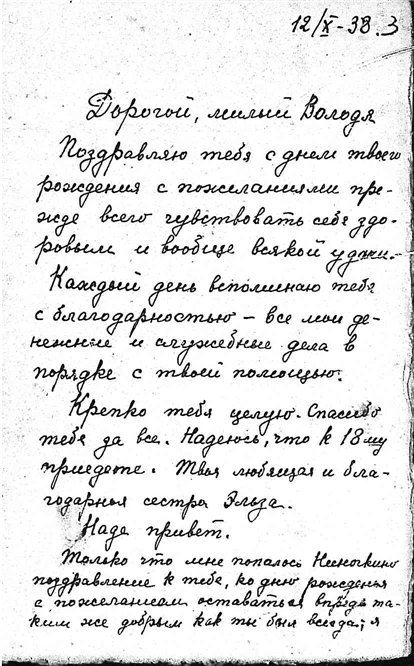 12/X-38.3
Дорогой, милый Володя
Поздравляю тебя с днем твоего
рождения с пожеланиями пре-
жде всего чувствовать себя здо-
ровым и вообще всякой удачи.-
Каждый день вспоминаю тебя
с благодарностью – все мои де-
нежные и служебные дела в
порядке с твоей помощью.
Крепко тебя целую. Спасибо
тебе за все. Надеюсь, что к 18му
приедете. Твоя любящая и бла-
годарная сестра Эльза.
Наде привет.
Только что мне попалось Ниночкино
поздравление к тебе, ко дню рожденья
с пожеланием оставаться впредь та-
ким же добрым как ты был всегда, я